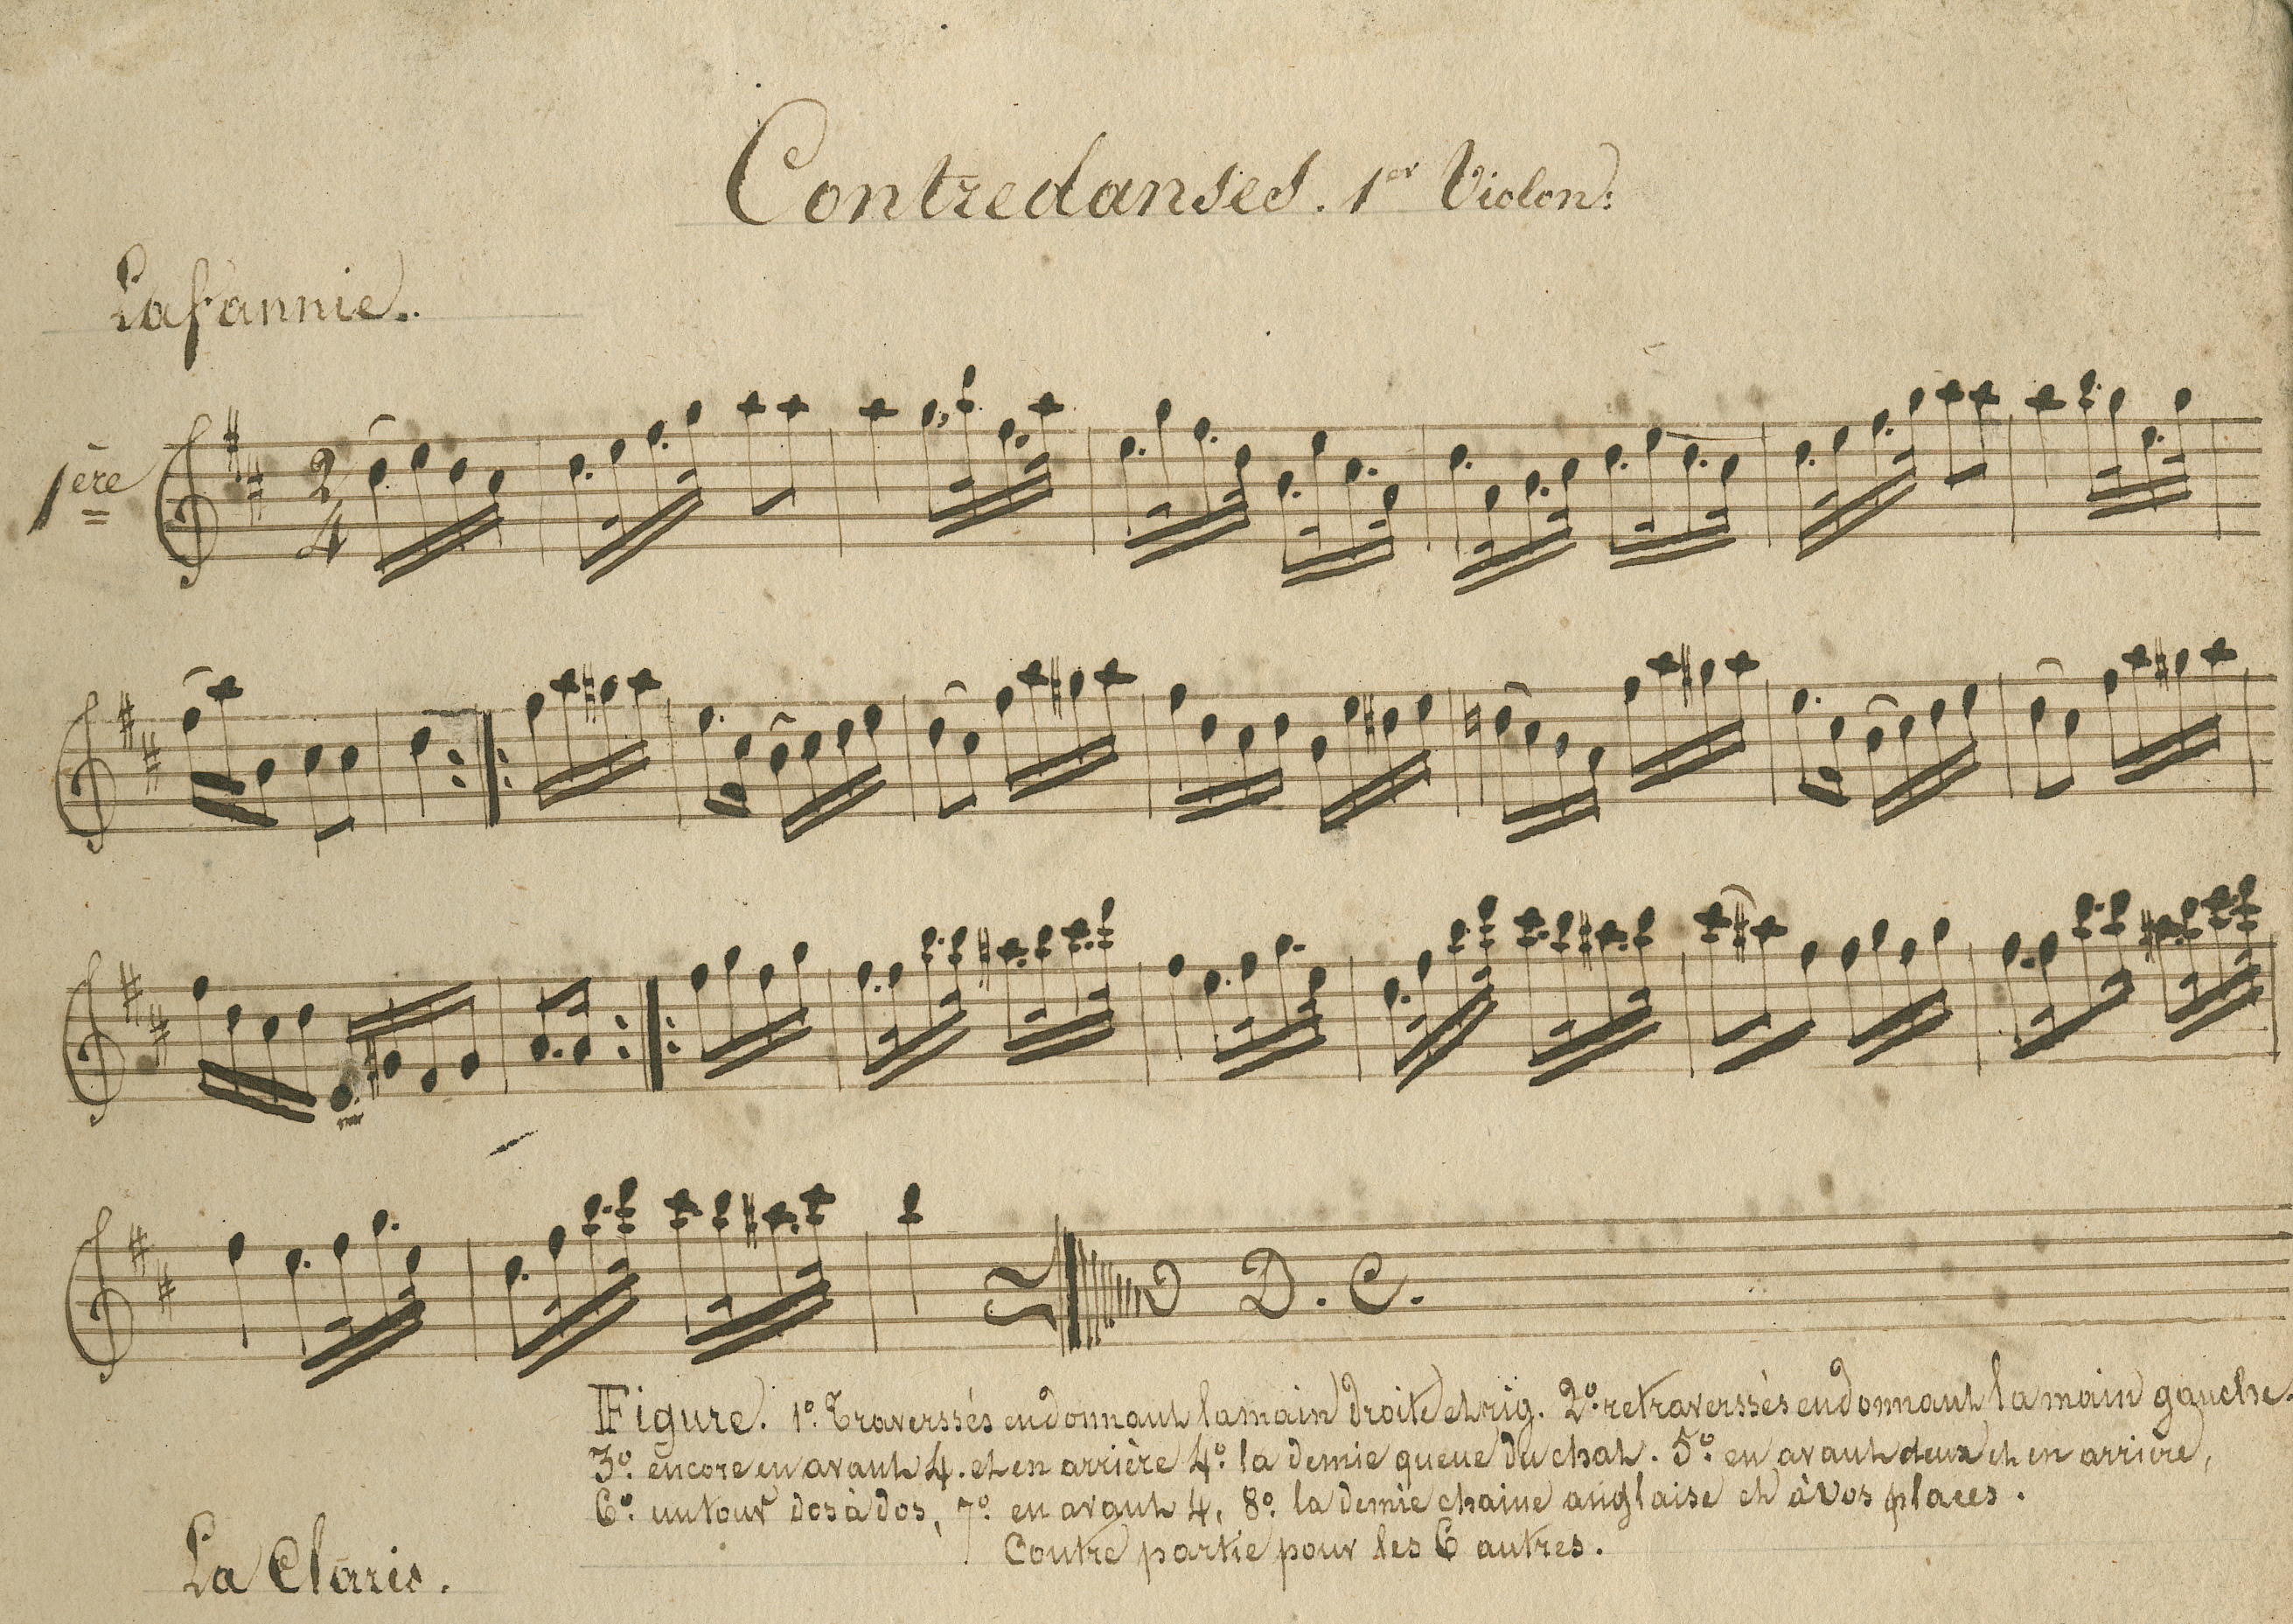 Contredanses. 1er Violon.
La fannie.
1ère
2/4
D. C.
Figure. 1º. Traverssés en donnant la main droite et rig. 2º. retraverssés en donnant la main gauche.
3º. encore en avant 4. et en arrière 4º. la demie queue du chat. 5º. en avant deux et en arrière,
6º. un tour dos à dos, 7º. en avant 4, 8º. la demie chaine anglaise et à vos places.
Contre partie pour les 6 autres.
La Claris.